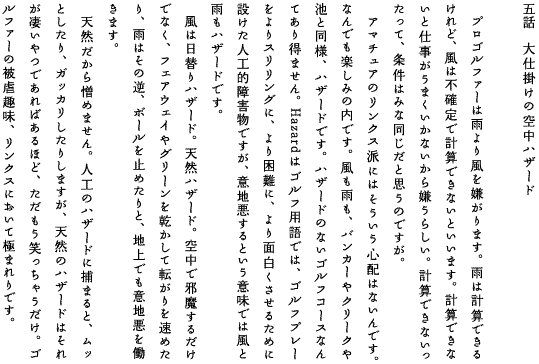 五話　大仕掛けの空中ハザード
プロゴルファーは雨より風を嫌がります。雨は計算できる
けれど、風は不確定で計算できないといいます。計算できな
いと仕事がうまくいかないから嫌うらしい。計算できないっ
たって、条件はみな同じだと思うのですが。
アマチュアのリンクス派にはそういう心配はないんです。
なんでも楽しみの内です。風も雨も、バンカーやクリークや
池と同様、ハザードです。ハザードのないゴルフコースなん
てあり得ません。Hazardはゴルフ用語では、ゴルフプレー
をよりスリリングに、より困難に、より面白くさせるために
設けた人工的障害物ですが、意地悪するという意味では風と
雨もハザードです。
風は日替りハザード。天然ハザード。空中で邪魔するだけ
でなく、フェアウェイやグリーンを乾かして転がりを速めた
り、雨はその逆、ボールを止めたりと、地上でも意地悪を働
きます。
天然だから憎めません。人工のハザードに捕まると、ムッ
としたり、ガッカリしたりしますが、天然のハザードはそれ
が凄いやつであればあるほど、ただもう笑っちゃうだけ。ゴ
ルファーの被虐趣味、リンクスにおいて極まれりです。